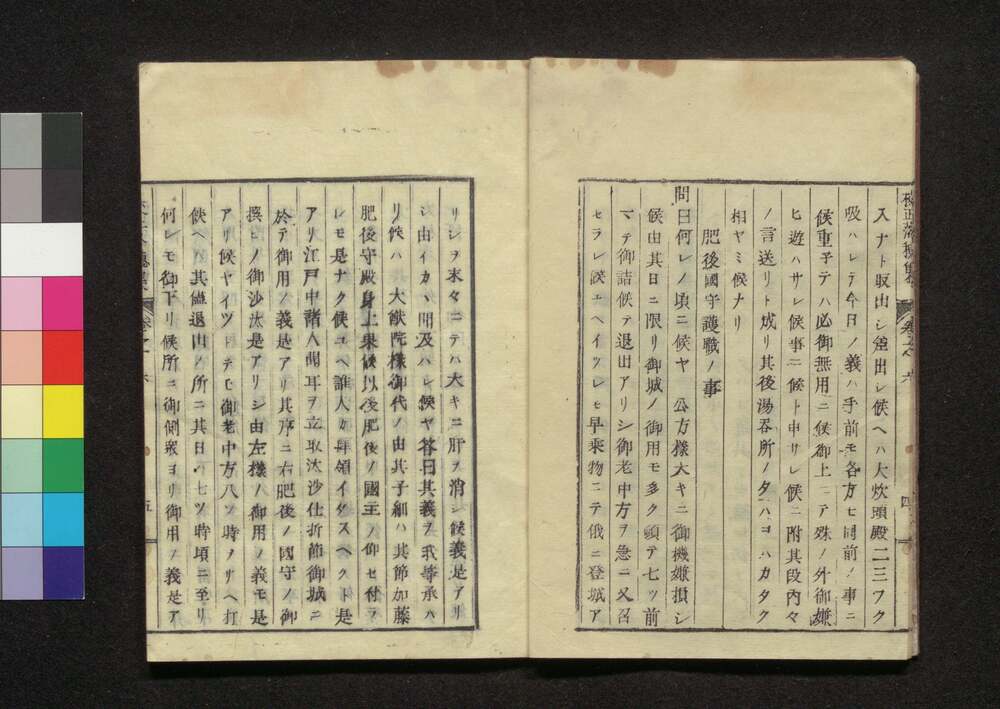 入ナト取出シ差出シ候ヘハ大炊頭殿二三フク
吸ハレテ今日ノ義ハ手前モ各方モ同前ノ事ニ
候重子テハ必御無用ニ候御上ニテ殊ノ外御嫌
ヒ遊ハサレ候事ニ候ト申サレ候ニ附其段内々
ノ言送リト成リ其後湯呑所ノタハコハカタク
相ヤミ候ナリ
肥後國守護職ノ事
問曰何レノ頃ニ候ヤ 公方樣大キニ御機嫌損シ
候由其日ニ限リ御城ノ御用モ多ク頭テ七ツ前
マテ御詰候テ退出アリシ御老中方ヲ急ニ又召
セラレ候ユヘイツレモ早乘物ニテ俄ニ登城ア
リシヲ末々ニテハ大キニ肝ヲ消シ候義是アリ
シ由イカヽ聞及ハレ候ヤ答曰其義ヲ我等承ハ
リ候ハ 大猷院樣御代ノ由其子細ハ其節加藤
肥後守殿身上果候以後肥後ノ國主ノ仰セ付ラ
レモ是ナク候ユヘ誰人カ拜領イタスヘクト是
アリ江戸中諸人聞耳ヲ立取沙汰仕折節御城ニ
於テ御用ノ義是アリ其序ニ右肥後ノ國守ノ御
撰ヒノ御沙汰是アリシ由左樣ノ御用ノ義モ是
アリ候ヤイツトテモ御老中方八ツ時ノサヘ打
候ヘハ其儘退出ノ所ニ其日ハ七ツ時頃ニ至リ
何レモ御下リ候所ニ御側衆ヨリ御用ノ義是ア
校正落穗集
卷之六
四
五